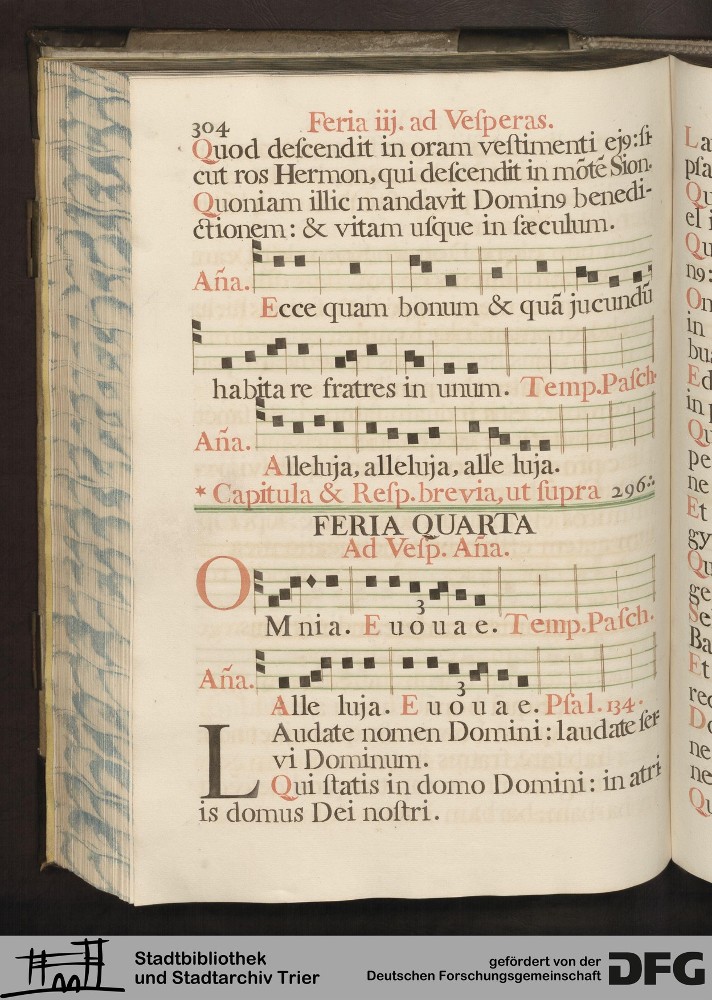 304 Feria iij. ad Veſperas.
Quod deſcendit in oram veſtimenti ej9: ſi-
cut ros Hermon, qui deſcendit in mõtẽ Sion.
Quoniam illic mandavit Domin9 benedi-
ctionem: & vitam uſque in ſæculum.
Aña.
Ecce quam bonum & quã jucundũ
habitare fratres in unum. Temp. Paſch.
Aña.
Alleluja, alleluja, alle luja.
* Capitula & Reſp. brevia, ut ſupra 296.
FERIA QUARTA
Ad Veſp. Aña.
O
Mnia. Euouae. Temp. Paſch.
3
Aña.
Alle luja. Euouae. Pſal. 134.
3
LAudate nomen Domini: laudate ſer-
vi Dominum.
Qui ſtatis in domo Domini: in atri-
is domus Dei noſtri.
La
pſa
Qu
el i
Qu
n9:
On
in
bu
Ed
in p
Qu
pe
ne
Et
gy
Qu
ge
Se
Ba
Et
rec
Do
ne
ne
Qu
Stadtbibliothek
und Stadtarchiv Trier
gefördert von der
Deutschen Forschungsgemeinschaft
DFG